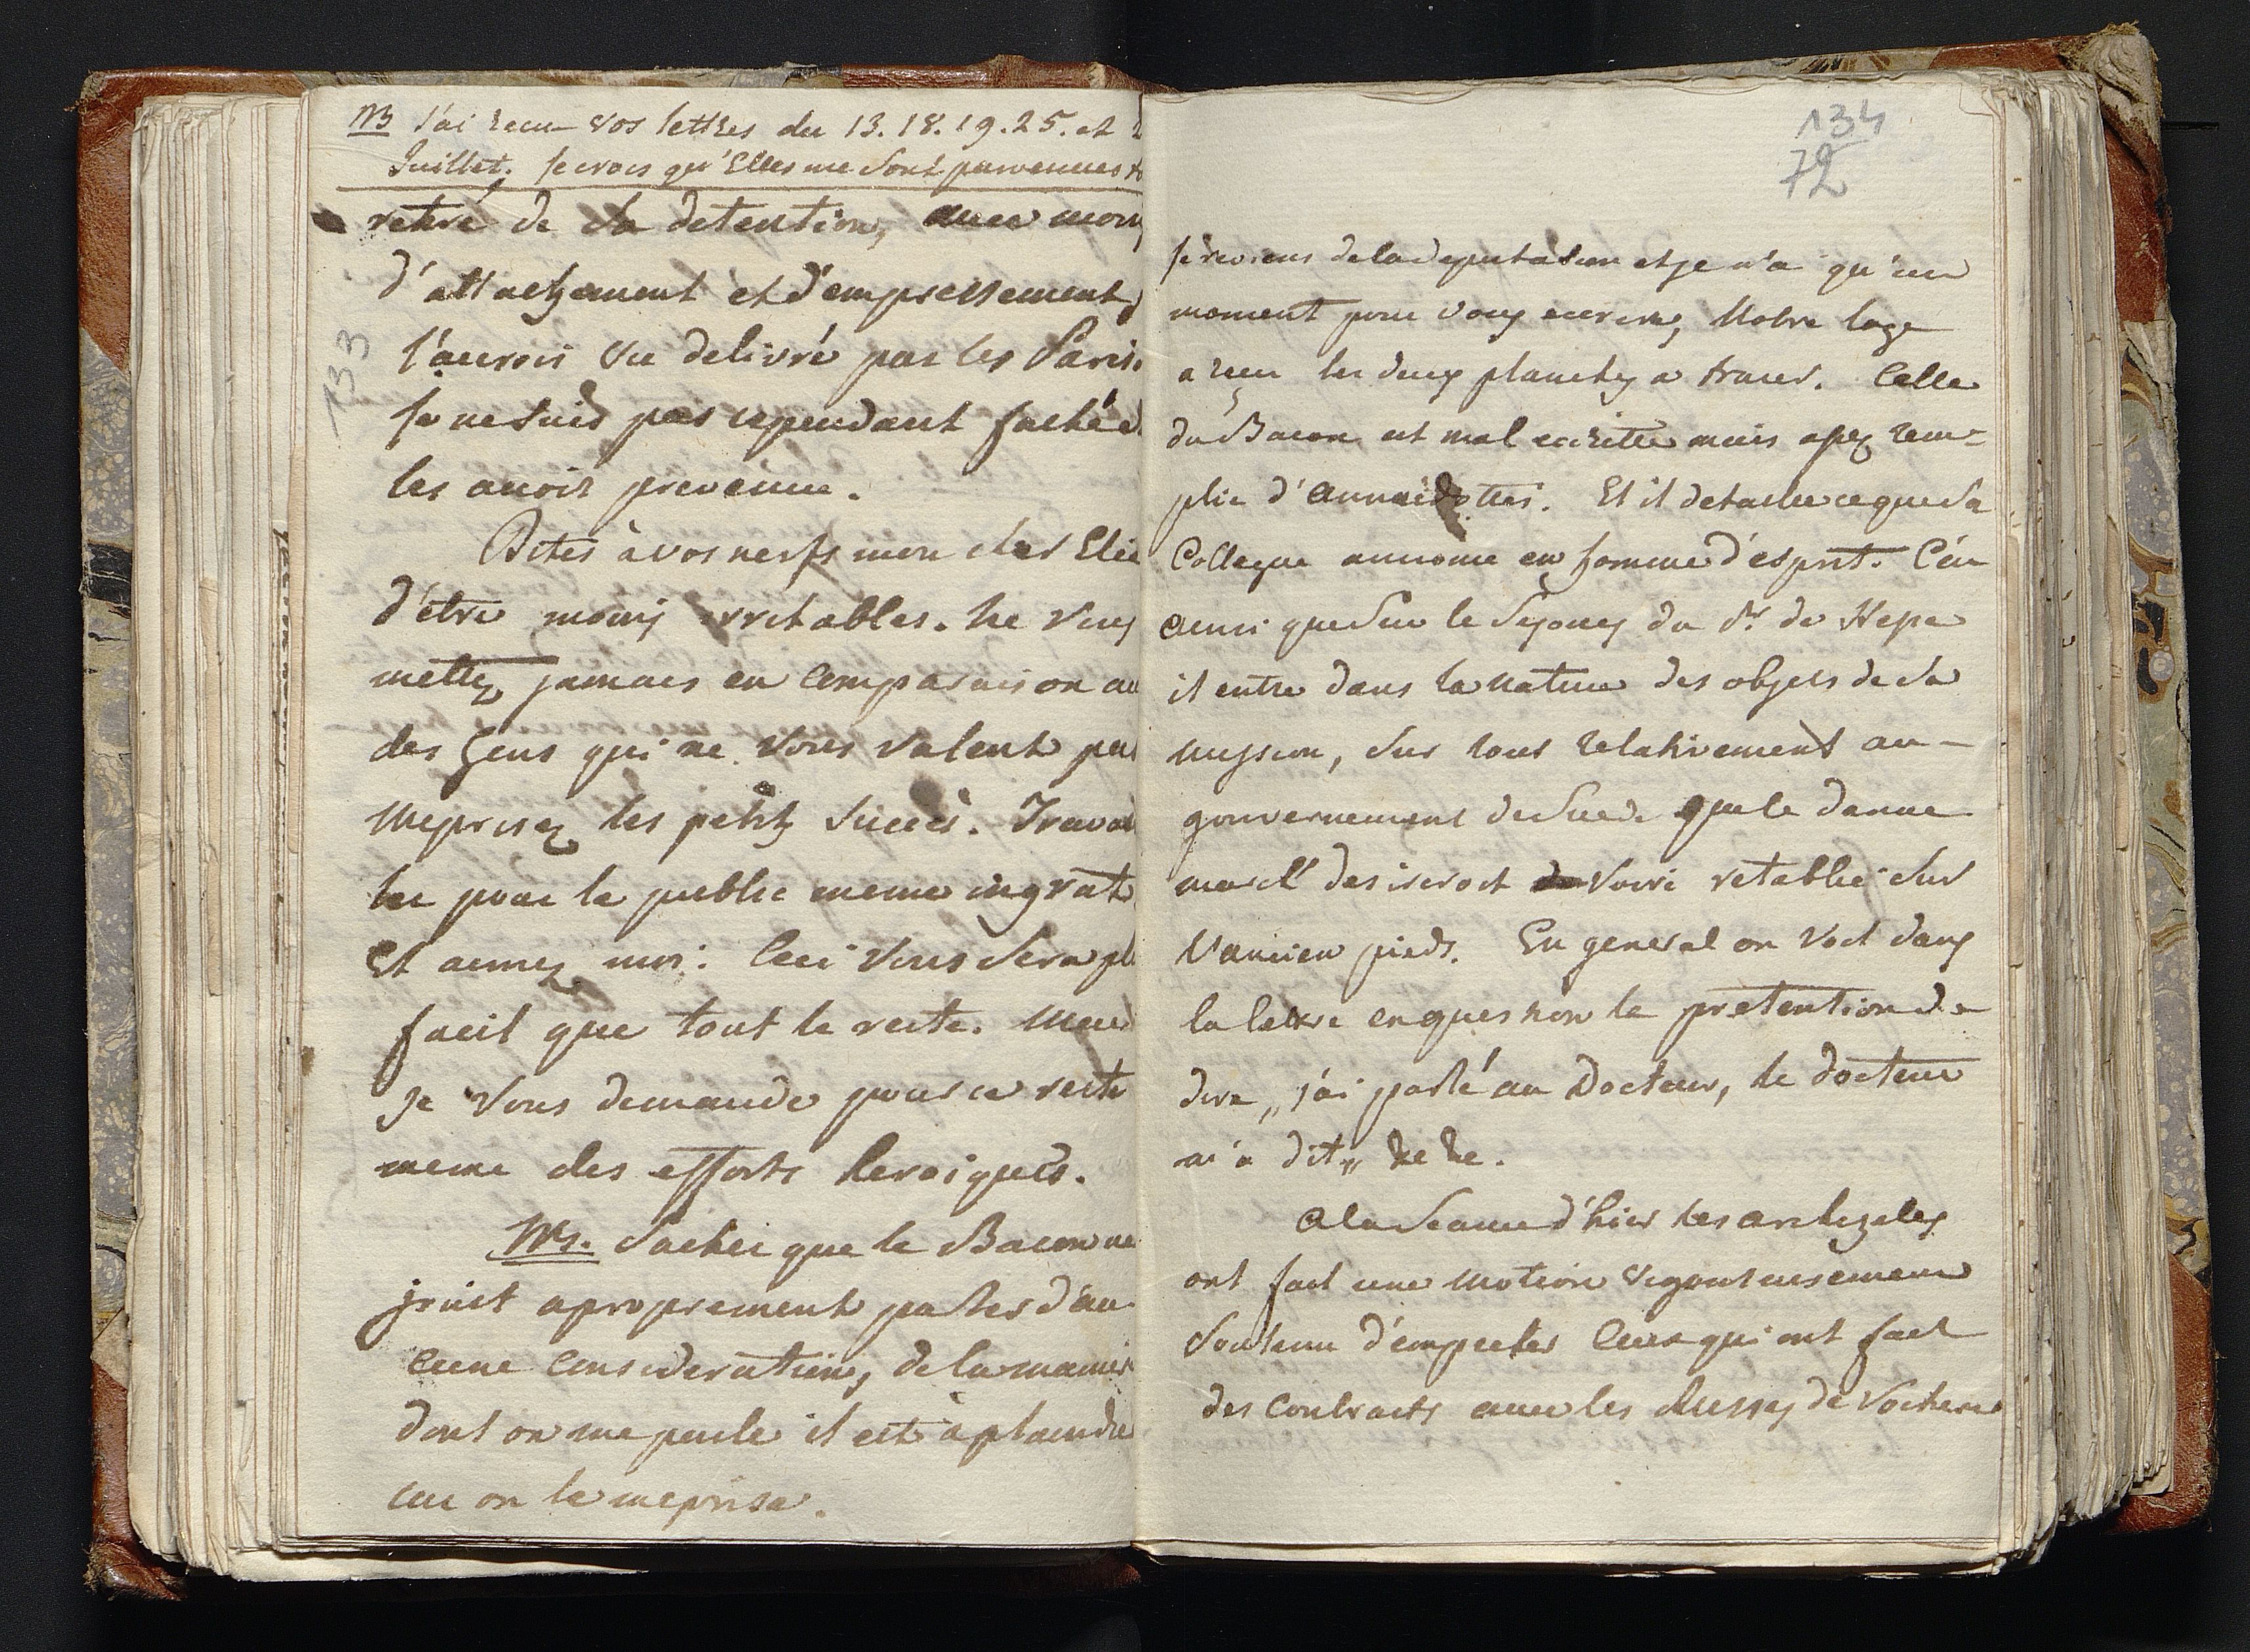 NB J'ai recu vos lettres du 13. 18. 19. 25. et 2
Juillet. Je crois qu'Elles me sont parvenues to
retiré de sa detention, avec moin
d'attachement et d'empressement,
l'aurois vu delivré par les Paris.
Je ne suis pas cependant faché d
les avoir prevenue.
Dites à vos nerfs mon cher Elie
d'être moins irritables. Ne vous
mettez jamais en comparaison av
des Gens qui ne vous valent pas
Meprisez les petits succès. Travail
ler pour le public meme ingrat
Et aimez moi: Ceci vous sera pl
facil que tout le reste. Mais
Je vous demande pour ce reste
meme des efforts heroiques.
NB. Sachez que le Bacon ne
jouit aproprement parler d'au
cune consideration, de la manier
dont on me parle il est à plaindre
car on le meprise.
133
134
72
Je reviens de la deputation et je n'a qu'un
moment pour vous ecrire, Notre loge
a recu les deux planches a tracer. Celle
du Bacon est mal ecritte mais assez rem-
plie d'annecdottes. Et il detaille ce que sa
Collegue annonce en homme d'esprit.
ainsi que sur le sejour du Pr. de Hesse
il entre dans la nature des objets de sa
mission, sur tout relativement au
gouvernement de Suede que le Danne
marck desireroit de voire retablie sur
l'ancien pieds. En general on voit dans
la lettre en question la pretention de
dire „j'ai parlé au Docteur, le docteur
m'a dit„ he he.
A la Seance d'hier les
ont fait une motion vigoureusement
soutenu d'empecher ceux qui ont fait
des Contracts avec les Russes de